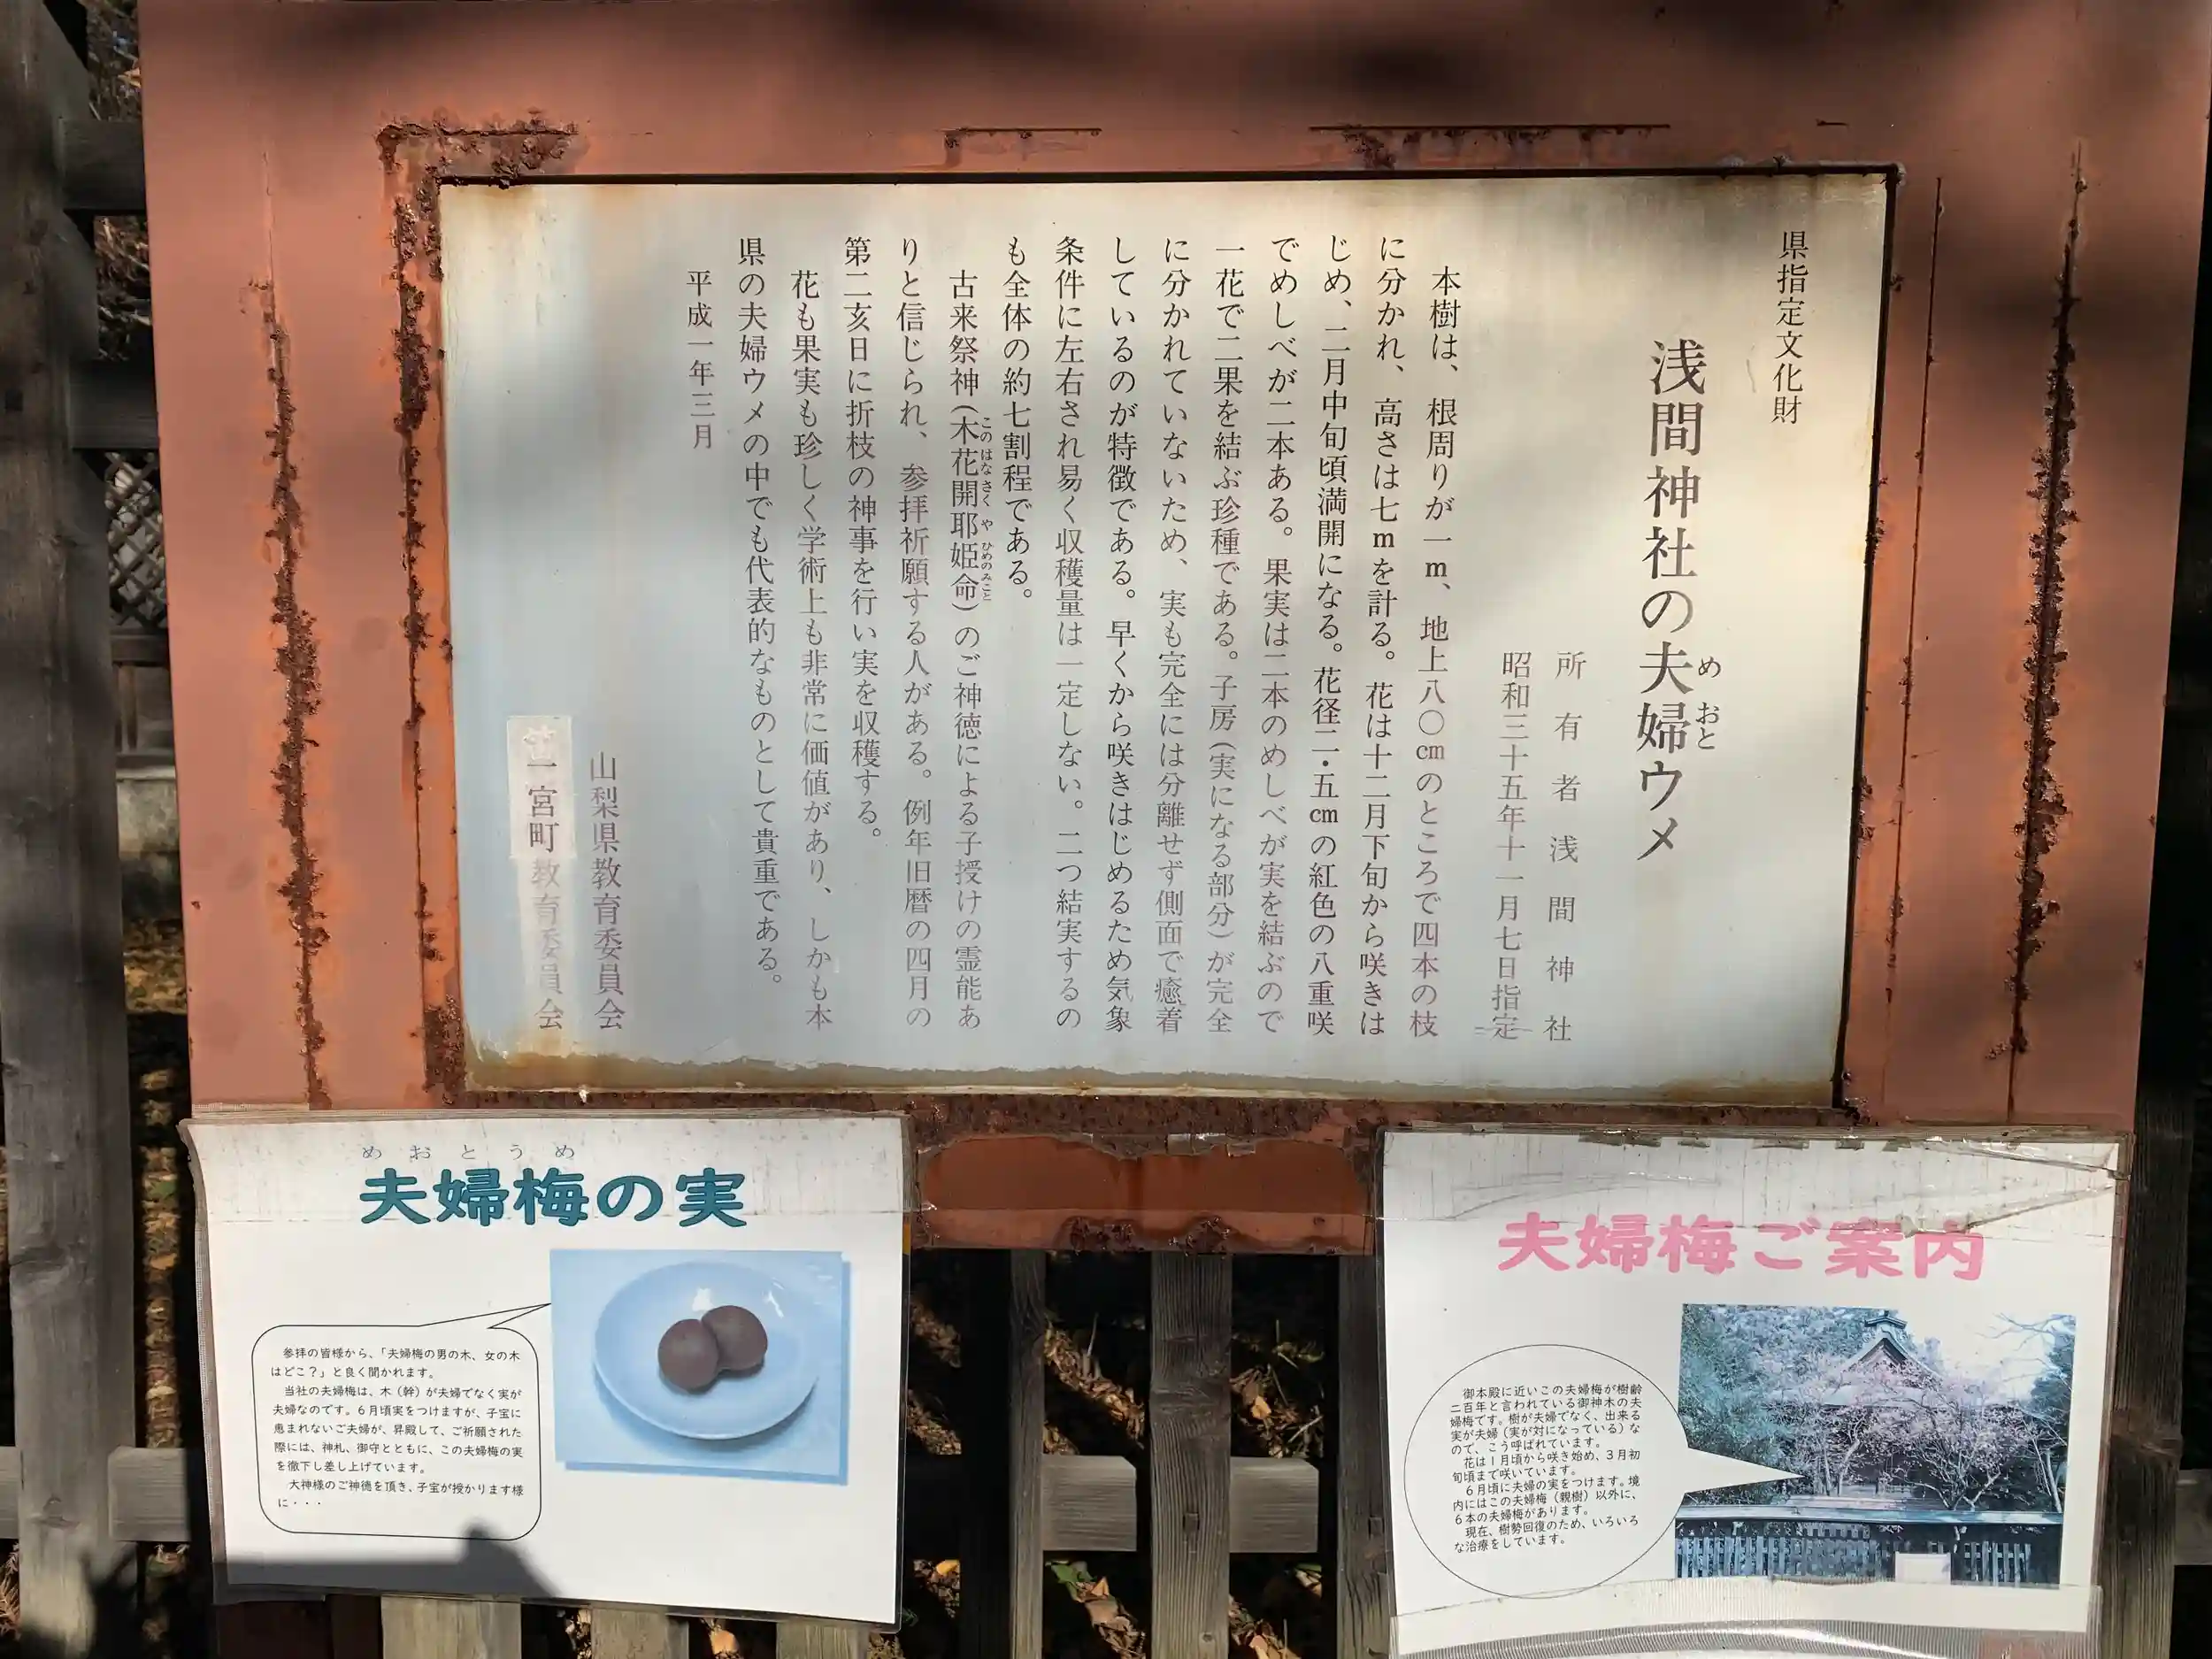 県指定文化財
浅間神社の夫婦ウメ
め おと
所有者 浅間神社
昭和三十五年十一月七日指定
本樹は、根周りが一m、地上八〇cmのところで四本の枝
に分かれ、高さは七mを計る。花は十二月下旬から咲きは
じめ、二月中旬頃満開になる。花径二・五cmの紅色の八重咲
でめしべが二本ある。果実は二本のめしべが実を結ぶので
一花で二果を結ぶ珍種である。子房(実になる部分)が完全
に分かれていないため、実も完全には分離せず側面で癒着
しているのが特徴である。早くから咲きはじめるため気象
条件に左右され易く収穫量は一定しない。二つ結実するの
も全体の約七割程である。
古来祭神(木花開耶姫命)のご神徳による子授けの霊能あ
このはなさくやひめのみこと
りと信じられ、参拝祈願する人がある。例年旧暦の四月の
第二亥日に折枝の神事を行い実を収穫する。
花も果実も珍しく学術上も非常に価値があり、しかも本
県の夫婦ウメの中でも代表的なものとして貴重である。
平成一年三月
山梨県教育委員会
一宮町教育委員会
めおとうめ
夫婦梅の実
参拝の皆様から、「夫婦梅の男の木、女の木
はどこ?」と良く聞かれます。
当社の夫婦梅は、木(幹)が夫婦でなく実が
夫婦なのです。6月頃実をつけますが、子宝に
恵まれないご夫婦が、昇殿して、ご祈願された
際には、神札、御守とともに、この夫婦梅の実
を徹下し差し上げています。
大神様のご神徳を頂き、子宝が授かります様
に・・・
夫婦梅ご案内
御本殿に近いこの夫婦梅が樹齢
二百年と言われている御神木の夫
婦梅です。樹が夫婦でなく、出来る
実が夫婦(実が対になっている)な
ので、こう呼ばれています。
花は1月頃から咲き始め、3月初
旬頃まで咲いています。
6月頃に夫婦の実をつけます。境
内にはこの夫婦梅(親樹)以外に、
6本の夫婦梅があります。
現在、樹勢回復のため、いろいろ
な治療をしています。